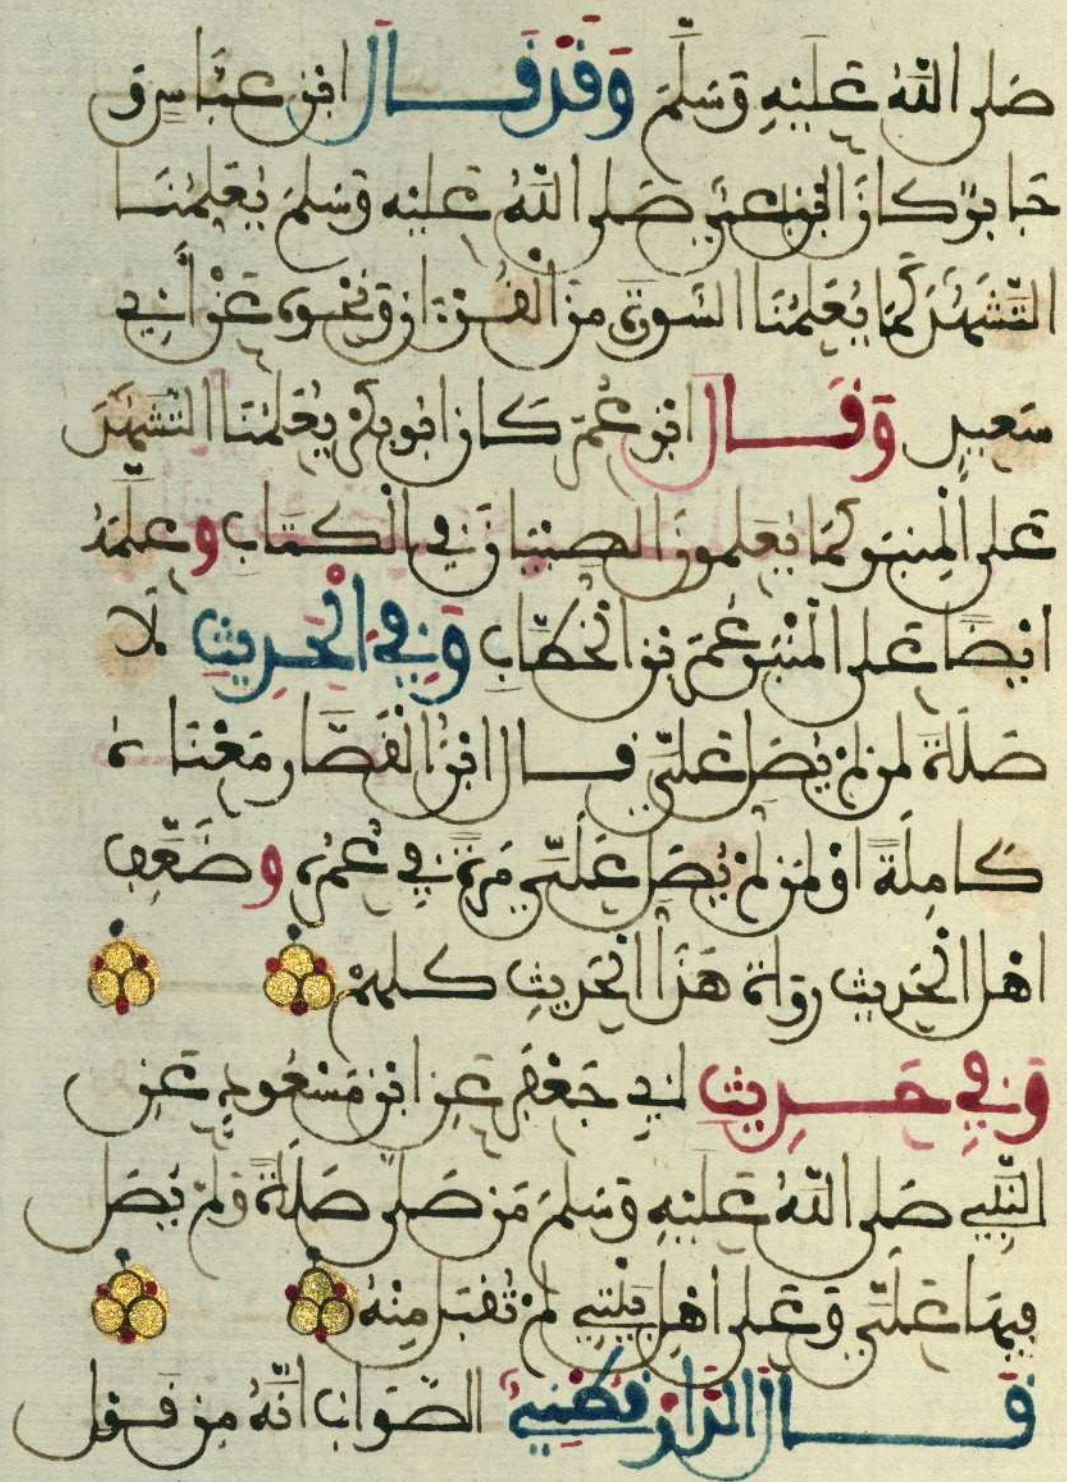 صَلى اللَّهُ عَلَيْهِ وَسَلَّمَ وَقَدْ قَالَ ابْن عبَّاس وَ
جَابِرٌ كَانَ النَّبِيُّ صَلى اللَّهُ عَلَيْهِ وَسَلمَ يُعَلِمُنَا
التَّشَهُّدَ كَمَا يُعَلِمُنَا السُّورَةَ مِنَ الْقُرْءَانِ وَنَحْوه عَنْ أَبِي
سَعيدٍ وَقَالَ ابْنُ عُمَرَ كَانَ ابُو بَكْرٍ يُعَلمُنَا التَّشَهُّدَ
عَلى الْمِنبَرِ كَمَا يُعَلمونَ الصبْيَانَ فِي الْكتَّابِ وعَلَّمَهُ
ايْضًا عَلى الْمِنْبَرِ عُمَرُ بْنُ الْخَطَّابِ وَفِي الْحَدِيثِ لَا
صَلَاةَ لِمَن لمْ يُصَلِّ عَلَيَّ قَالَ ابْنُ الْقَصَّارِ مَعْنَاهُ
كَامِلَةً اوْ لِمَنْ لمْ يُصَلِّ عَلَيَّ مَرَّةً فِي عُمْرِهِ وضَعَّفَ
اهْل الْحَدِيثِ رِوَاةَ هَذَا الْحَدِيثِ كلهمْ
وَفِي حَدِيثِ ابِي جَعْفَرٍ عَنِ ابْنِ مَسْعُودٍ عَنِ
النَّبِيِّ صَلى اللَّهُ عَلَيْهِ وَسَلمَ مَن صَلى صَلَاةً وَلمْ يُصَلِّ
فِيهَا عَلَيَّ وَعَلى أهْلِ بَيْتِي لمْ تُقْبَلْ مِنْهُ
قَالَ الدَّارَقُطْنِيُّ الصَّوَابُ انَّهُ مِن قَوْلِ